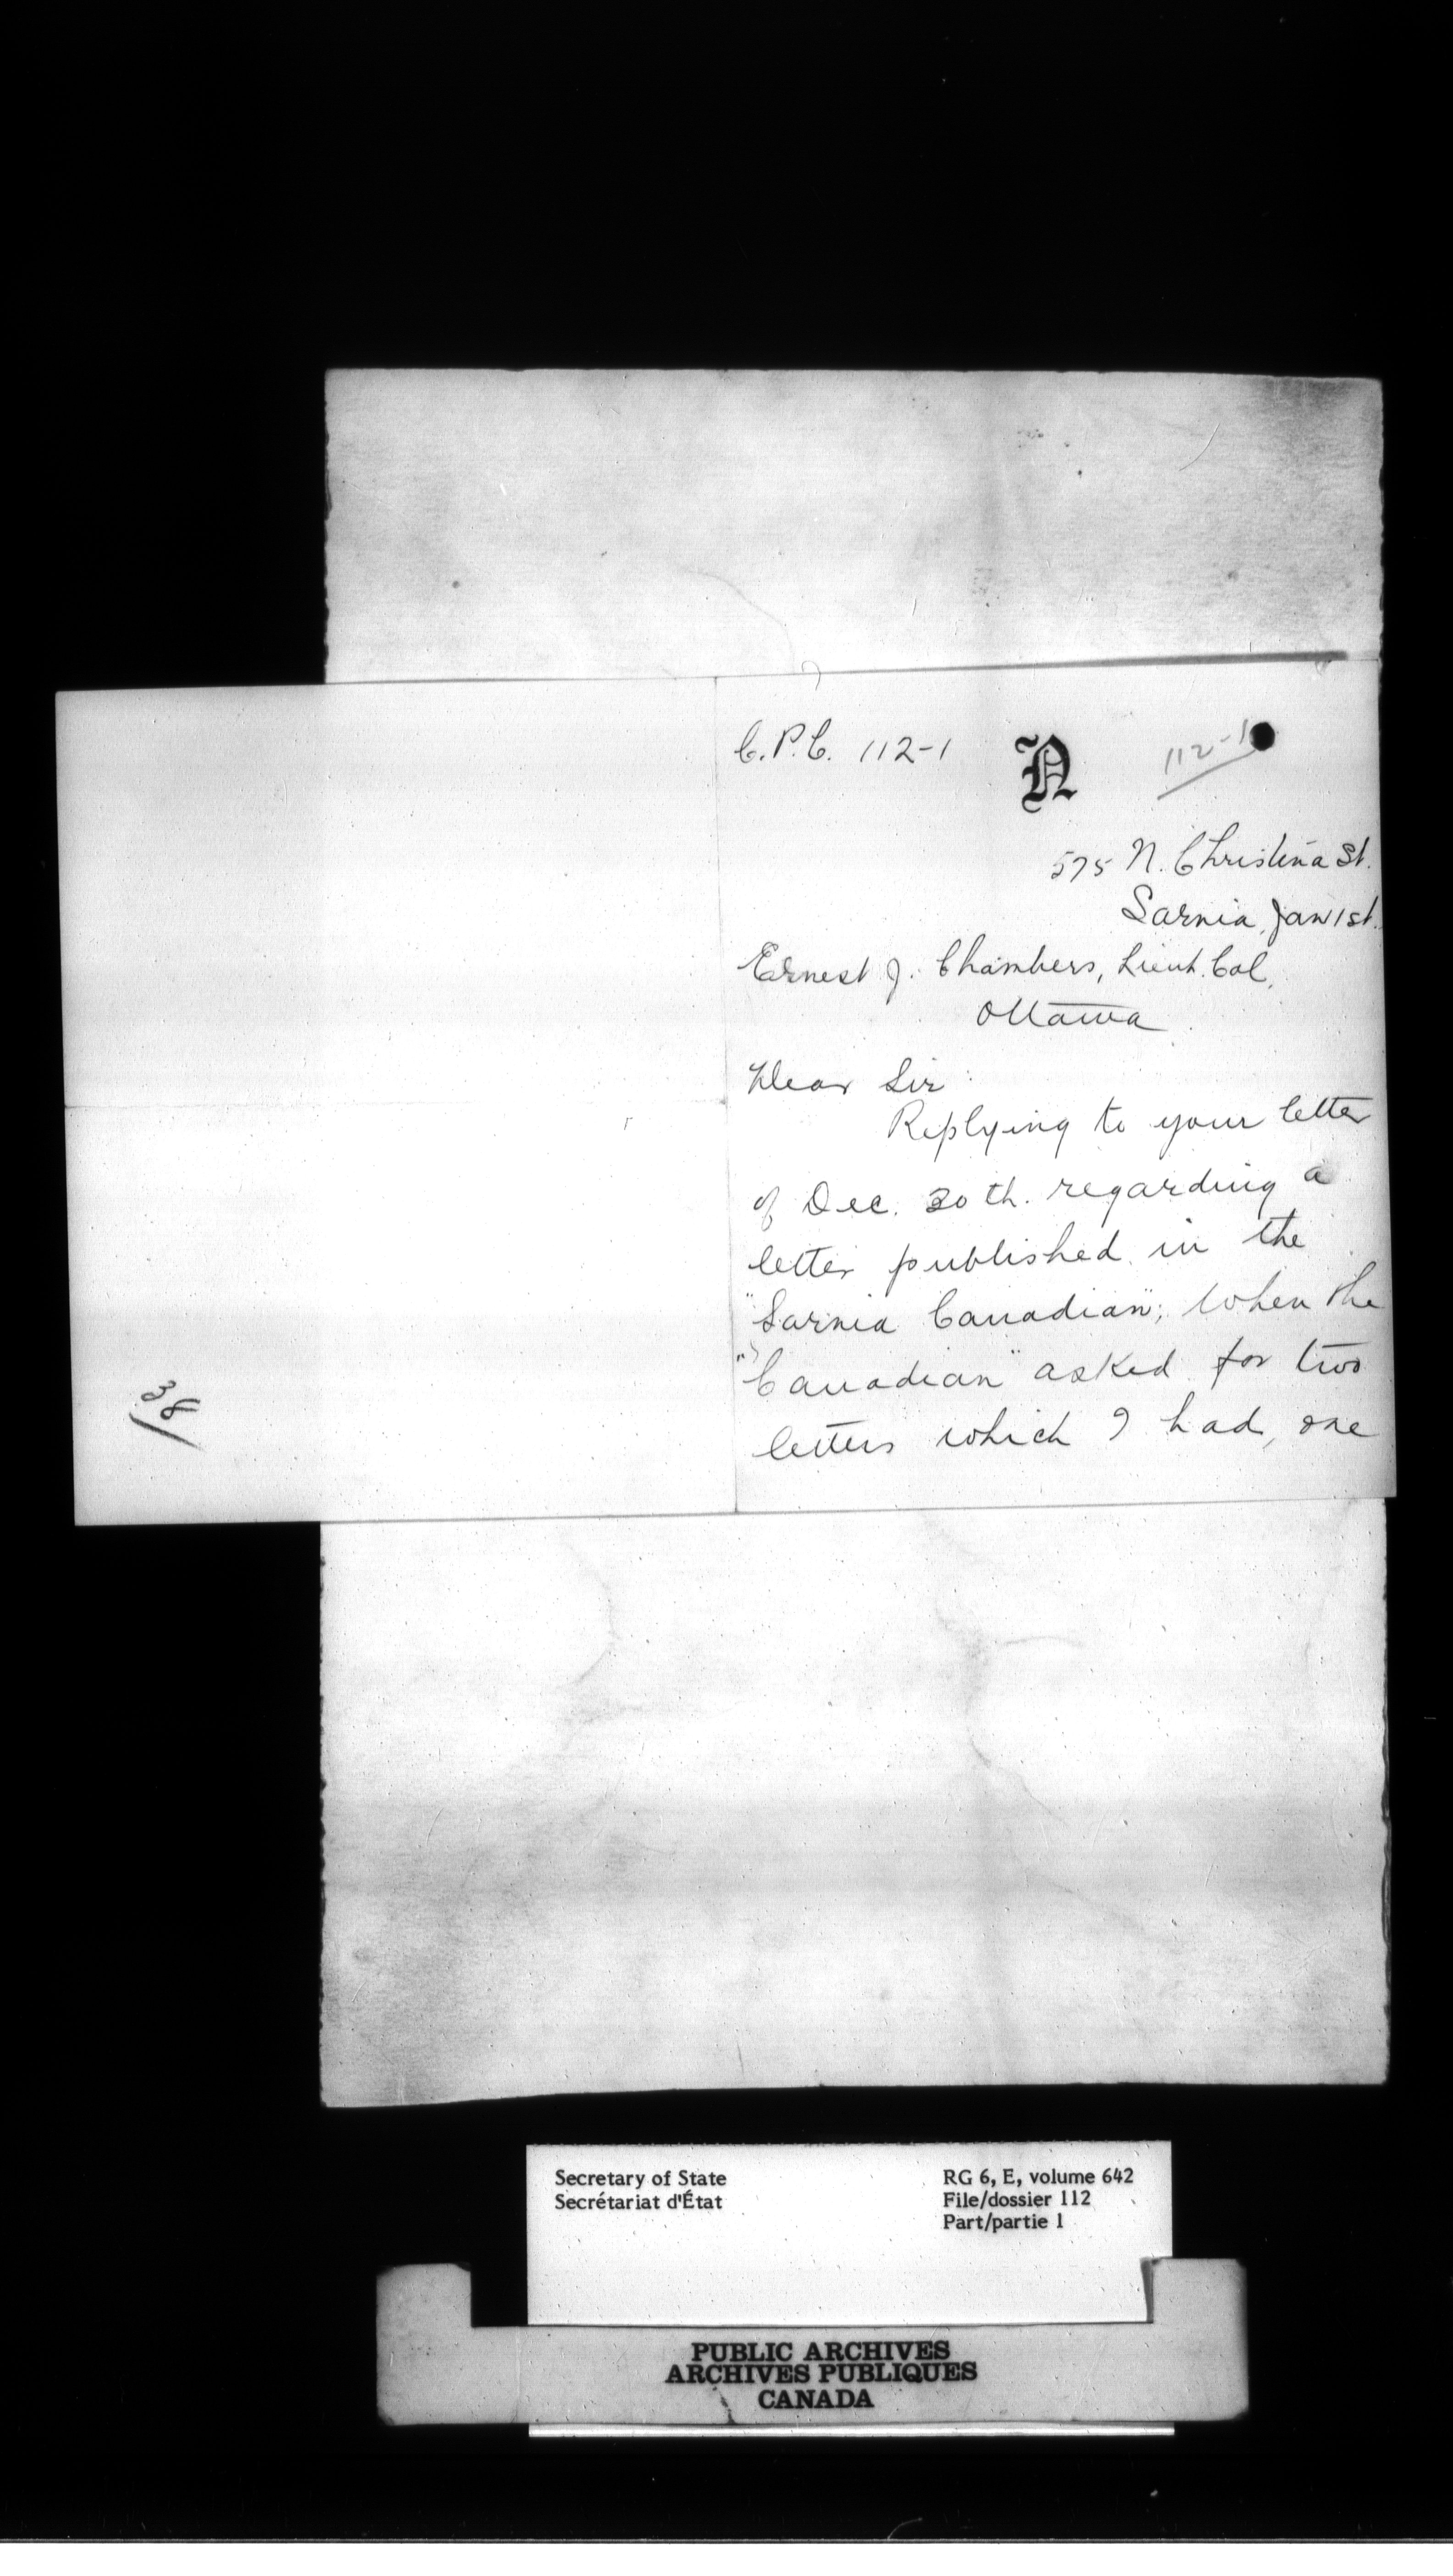 C.P.C. 112-1
N
112-1
575 N. Christina St.
Sarnia, Jan 1st.
Ernest J. Chambers, Lieut. Col.
Ottawa
Dear Sir:
Replying to your letter
of Dec. 30th. regarding a
letter published in the
"Sarnia Canadian"; When the
"Canadian" asked for two
letters which I had, one
38
Secretary of State
Secrétariat d'État
RG 6, E, volume 642
File/dossier 112
Part/partie 1
PUBLIC ARCHIVES
ARCHIVES PUBLIQUES
CANADA